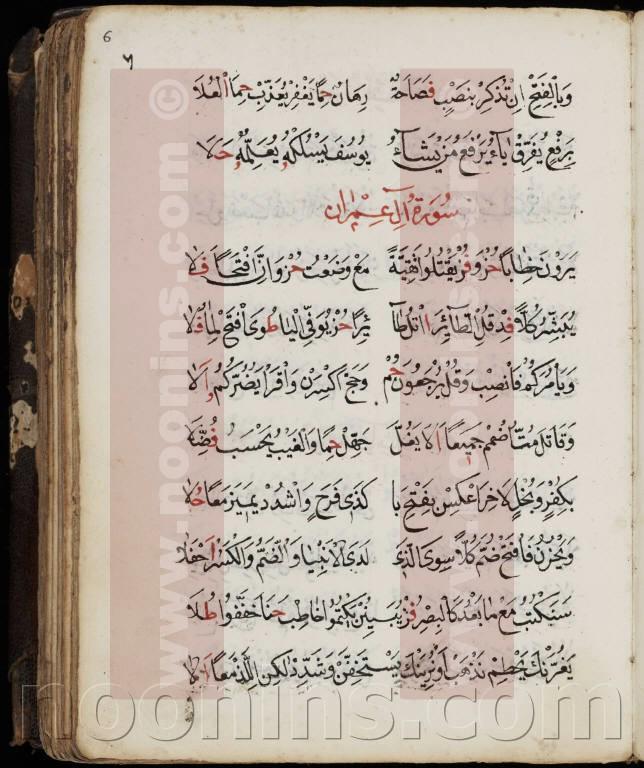 6
٦
وبالفتح ان تذكر بنصب فصاحة رهان حما يغفر يعذب حما العلا
برفع يفرق ياء يرفع من يشاء يوسف يسلكه يعلمه حلا
سورة آل عمران
يرون خطابا حز وفز يقتلوا تقية مع وضعت حز وان افتحا فلا
يبشر كلا فد قل الطائر اتل طائرا حز يوفي اليا طوى افتح لما فلا
ويأمركم فانصب وقل يرجعون حم وحج اكسرن واقرأ يضركم الا
وقاتل مت اضمم جميعا الا يغل جهل حما والغيب يحسب فضلا
بكفر وبخل الاخر اعكس بفتح با كذي فرح واشدد يميز معا حلا
ويحزن فافتح ضم كلا سوى الذي لدى الانبيا والضم والكسر احفلا
سنكتب مع ما بعد كالبصر فز يبينن يكتموا خاطب حنا خففوا طلا
يغرنك يحطم نذهب او نرينك يستخفن وشدد لكن اللذ معا الا
www.noonins.com ©
www.noonins.com ©
noonins.com